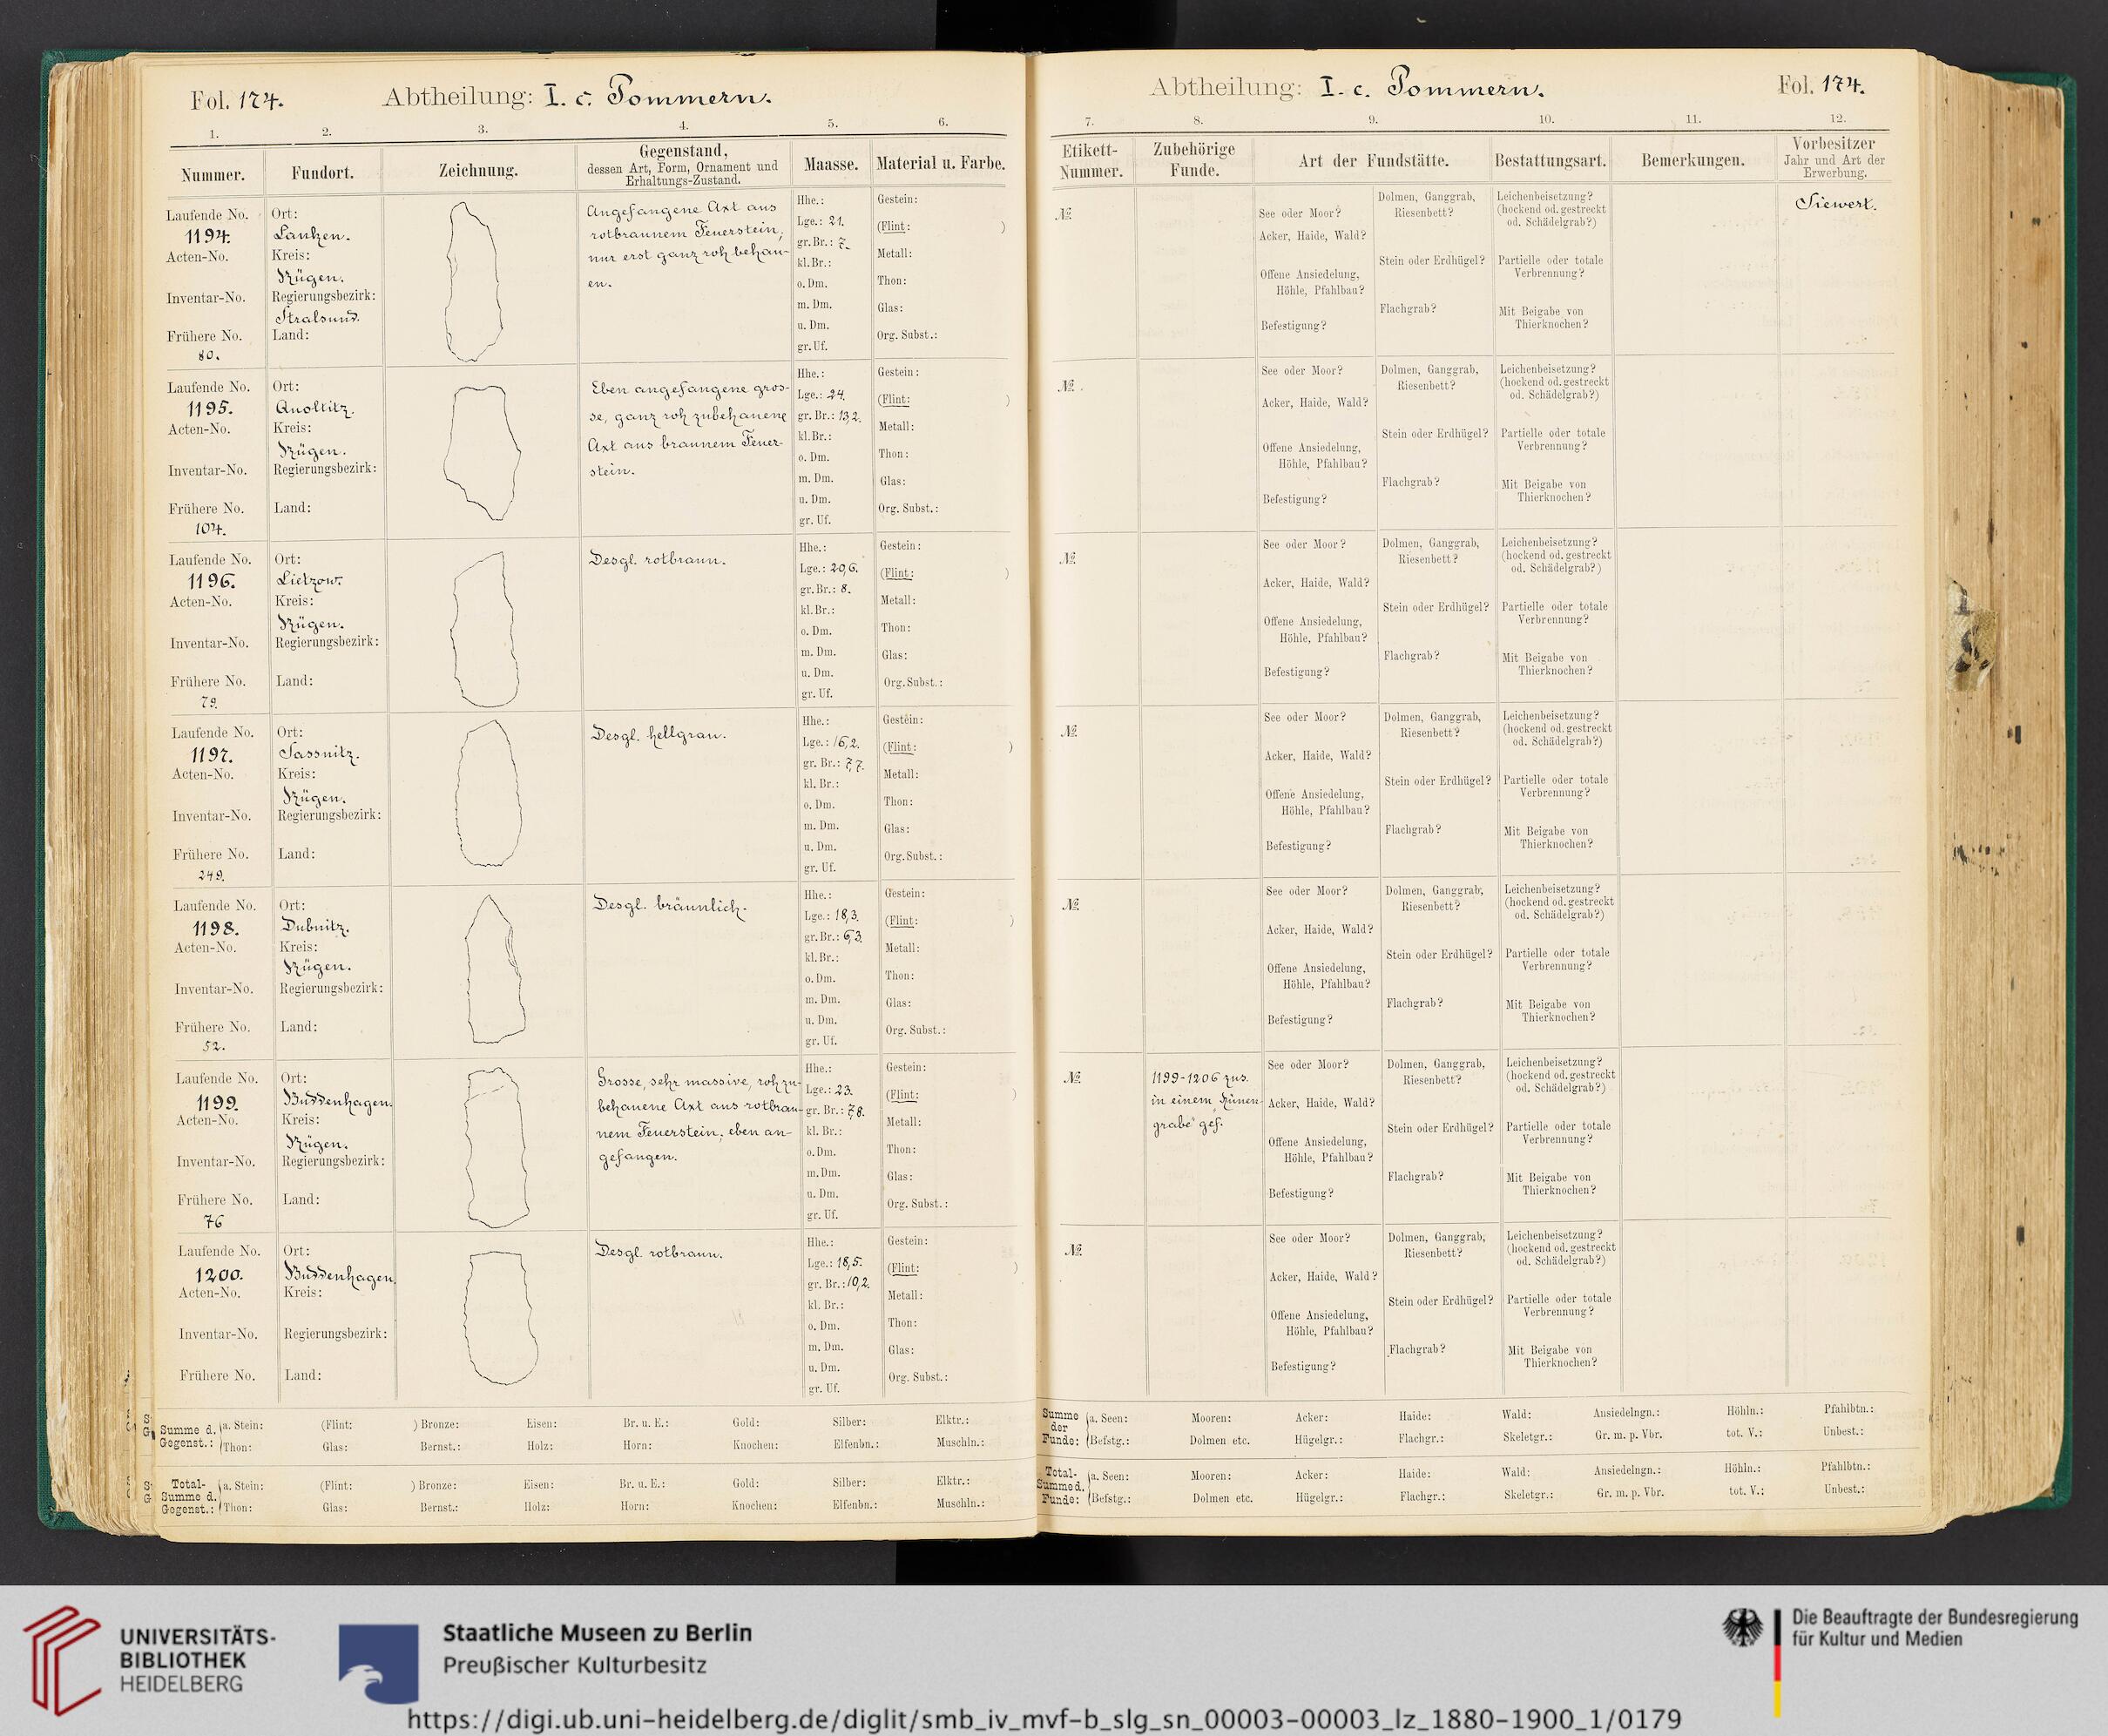 Fol. 174.
Abtheilung: I. c. Pommern.
1. 2. 3. 4. 5. 6.
Nummer. Fundort. Zeichnung. Gegenstand, dessen Art, Form, Ornament und Erhaltungs-Zustand. Maasse. Material u. Farbe.
Laufende No.
1194.
Acten-No.
Inventar-No.
Frühere No.
80.
Ort:
Lanken.
Kreis:
Rügen.
Regierungsbezirk:
Stralsund.
Land:
Angefangene Axt aus
rotbraunem Feuerstein,
nur erst ganz roh behau-
en.
Hhe.:
Lge.: 21.
gr. Br.: 7.
kl. Br.:
o. Dm.
m. Dm.
u. Dm.
gr. Uf.
Gestein:
(Flint: )
Metall:
Thon:
Glas:
Org. Subst.:
Laufende No.
1195.
Acten-No.
Inventar-No.
Frühere No.
104.
Ort:
Quoltitz.
Kreis:
Rügen.
Regierungsbezirk:
Land:
Eben angefangene gros-
se, ganz roh zubehauene
Axt aus braunem Feuer-
stein.
Hhe.:
Lge.: 24.
gr. Br.: 13,2.
kl. Br.:
o. Dm.
m. Dm.
u. Dm.
gr. Uf.
Gestein:
(Flint: )
Metall:
Thon:
Glas:
Org. Subst.:
Laufende No.
1196.
Acten-No.
Inventar-No.
Frühere No.
79.
Ort:
Lietzow.
Kreis:
Rügen.
Regierungsbezirk:
Land:
Desgl. rotbraun.
Hhe.:
Lge.: 20,6.
gr. Br.: 8.
kl. Br.:
o. Dm.
m. Dm.
u. Dm.
gr. Uf.
Gestein:
(Flint: )
Metall:
Thon:
Glas:
Org. Subst.:
Laufende No.
1197.
Acten-No.
Inventar-No.
Frühere No.
249.
Ort:
Sassnitz.
Kreis:
Rügen.
Regierungsbezirk:
Land:
Desgl. hellgrau.
Hhe.:
Lge.: 16,2.
gr. Br.: 7,7.
kl. Br.:
o. Dm.
m. Dm.
u. Dm.
gr. Uf.
Gestein:
(Flint: )
Metall:
Thon:
Glas:
Org. Subst.:
Laufende No.
1198.
Acten-No.
Inventar-No.
Frühere No.
52.
Ort:
Dubnitz.
Kreis:
Rügen.
Regierungsbezirk:
Land:
Desgl. bräunlich.
Hhe.:
Lge.: 18,3.
gr. Br.: 6,3.
kl. Br.:
o. Dm.
m. Dm.
u. Dm.
gr. Uf.
Gestein:
(Flint: )
Metall:
Thon:
Glas:
Org. Subst.:
Laufende No.
1199.
Acten-No.
Inventar-No.
Frühere No.
76
Ort:
Buddenhagen.
Kreis:
Rügen.
Regierungsbezirk:
Land:
Grosse, sehr massive, roh zu-
behauene Axt aus rotbrau-
nem Feuerstein, eben an-
gefangen.
Hhe.:
Lge.: 23.
gr. Br.: 7,8.
kl. Br.:
o. Dm.
m. Dm.
u. Dm.
gr. Uf.
Gestein:
(Flint: )
Metall:
Thon:
Glas:
Org. Subst.:
Laufende No.
1200.
Acten-No.
Inventar-No.
Frühere No.
Ort:
Buddenhagen.
Kreis:
Regierungsbezirk:
Land:
Desgl. rotbraun.
Hhe.:
Lge.: 18,5.
gr. Br.: 10,2.
kl. Br.:
o. Dm.
m. Dm.
u. Dm.
gr. Uf.
Gestein:
(Flint: )
Metall:
Thon:
Glas:
Org. Subst.:
Summe d. Gegenst.: a. Stein: (Flint: ) Bronze: Eisen: Br. u. E.: Gold: Silber: Elktr.:
Thon: Glas: Bernst.: Holz: Horn: Knochen: Elfenbn.: Muschln.:
Total-Summe d. Gegenst.: a. Stein: (Flint: ) Bronze: Eisen: Br. u. E.: Gold: Silber: Elktr.:
Thon: Glas: Bernst.: Holz: Horn: Knochen: Elfenbn.: Muschln.:
Abtheilung: I. c. Pommern.
Fol. 174.
7. 8. 9. 10. 11. 12.
Etikett-Nummer. Zubehörige Funde. Art der Fundstätte. Bestattungsart. Bemerkungen. Vorbesitzer Jahr und Art der Erwerbung.
№
See oder Moor?
Acker, Haide, Wald?
Offene Ansiedelung,
Höhle, Pfahlbau?
Befestigung?
Dolmen, Ganggrab,
Riesenbett?
Stein oder Erdhügel?
Flachgrab?
Leichenbeisetzung?
(hockend od. gestreckt
od. Schädelgrab?)
Partielle oder totale
Verbrennung?
Mit Beigabe von
Thierknochen?
Siewert.
№
See oder Moor?
Acker, Haide, Wald?
Offene Ansiedelung,
Höhle, Pfahlbau?
Befestigung?
Dolmen, Ganggrab,
Riesenbett?
Stein oder Erdhügel?
Flachgrab?
Leichenbeisetzung?
(hockend od. gestreckt
od. Schädelgrab?)
Partielle oder totale
Verbrennung?
Mit Beigabe von
Thierknochen?
№
See oder Moor?
Acker, Haide, Wald?
Offene Ansiedelung,
Höhle, Pfahlbau?
Befestigung?
Dolmen, Ganggrab,
Riesenbett?
Stein oder Erdhügel?
Flachgrab?
Leichenbeisetzung?
(hockend od. gestreckt
od. Schädelgrab?)
Partielle oder totale
Verbrennung?
Mit Beigabe von
Thierknochen?
№
See oder Moor?
Acker, Haide, Wald?
Offene Ansiedelung,
Höhle, Pfahlbau?
Befestigung?
Dolmen, Ganggrab,
Riesenbett?
Stein oder Erdhügel?
Flachgrab?
Leichenbeisetzung?
(hockend od. gestreckt
od. Schädelgrab?)
Partielle oder totale
Verbrennung?
Mit Beigabe von
Thierknochen?
№
See oder Moor?
Acker, Haide, Wald?
Offene Ansiedelung,
Höhle, Pfahlbau?
Befestigung?
Dolmen, Ganggrab,
Riesenbett?
Stein oder Erdhügel?
Flachgrab?
Leichenbeisetzung?
(hockend od. gestreckt
od. Schädelgrab?)
Partielle oder totale
Verbrennung?
Mit Beigabe von
Thierknochen?
№
1199-1206 zus.
in einem Hünen-
grabe gef.
See oder Moor?
Acker, Haide, Wald?
Offene Ansiedelung,
Höhle, Pfahlbau?
Befestigung?
Dolmen, Ganggrab,
Riesenbett?
Stein oder Erdhügel?
Flachgrab?
Leichenbeisetzung?
(hockend od. gestreckt
od. Schädelgrab?)
Partielle oder totale
Verbrennung?
Mit Beigabe von
Thierknochen?
№
See oder Moor?
Acker, Haide, Wald?
Offene Ansiedelung,
Höhle, Pfahlbau?
Befestigung?
Dolmen, Ganggrab,
Riesenbett?
Stein oder Erdhügel?
Flachgrab?
Leichenbeisetzung?
(hockend od. gestreckt
od. Schädelgrab?)
Partielle oder totale
Verbrennung?
Mit Beigabe von
Thierknochen?
Summe der Funde: a. Seen: Mooren: Acker: Haide: Wald: Ansiedelngn.: Höhln.: Pfahlbtn.:
Befstg.: Dolmen etc. Hügelgr.: Flachgr.: Skeletgr.: Gr. m. p. Vbr. tot. V.: Unbest.:
Total-Summe d. Funde: a. Seen: Mooren: Acker: Haide: Wald: Ansiedelngn.: Höhln.: Pfahlbtn.:
Befstg.: Dolmen etc. Hügelgr.: Flachgr.: Skeletgr.: Gr. m. p. Vbr. tot. V.: Unbest.:
UNIVERSITÄTS-
BIBLIOTHEK
HEIDELBERG
Staatliche Museen zu Berlin
Preußischer Kulturbesitz
Die Beauftragte der Bundesregierung
für Kultur und Medien
https://digi.ub.uni-heidelberg.de/diglit/smb_iv_mvf-b_slg_sn_00003-00003_lz_1880-1900_1/0179